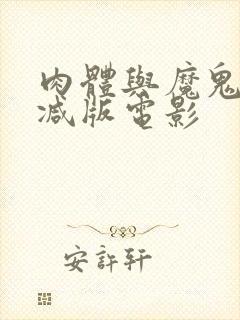 肉體與魔鬼
减版電影
安許軒